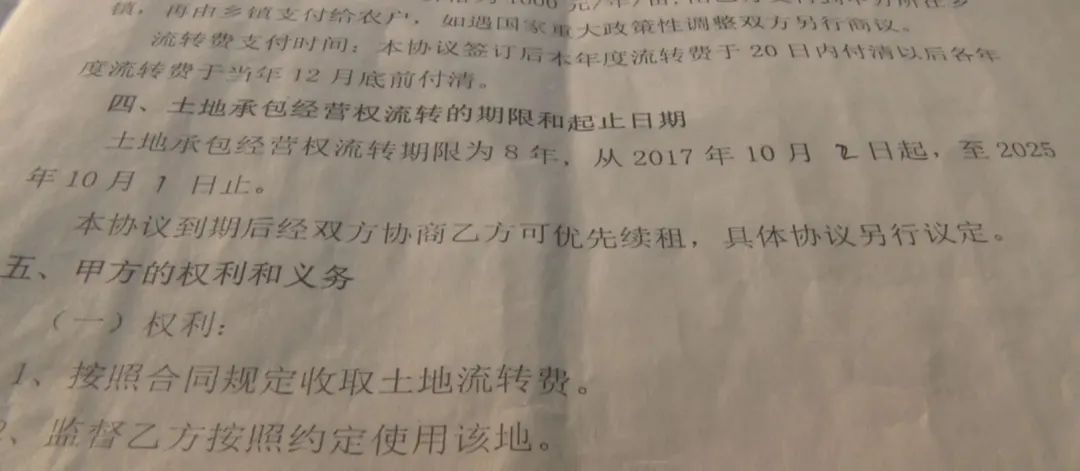 1000 元/年/亩,
镇，再由乡镇支付给农户，如遇国家重大政策性调整双方另行商议。
流转费支付时间：本协议签订后本年度流转费于 20 日内付清以后各年
度流转费于当年 12 月底前付清。
四、土地承包经营权流转的期限和起止日期
土地承包经营权流转期限为 8 年，从 2017 年 10 月 2 日起，至 2025
年 10 月 1 日止。
本协议到期后经双方协商乙方可优先续租，具体协议另行议定。
五、甲方的权利和义务
（一）权利：
1、按照合同规定收取土地流转费。
、监督乙方按照约定使用该地。